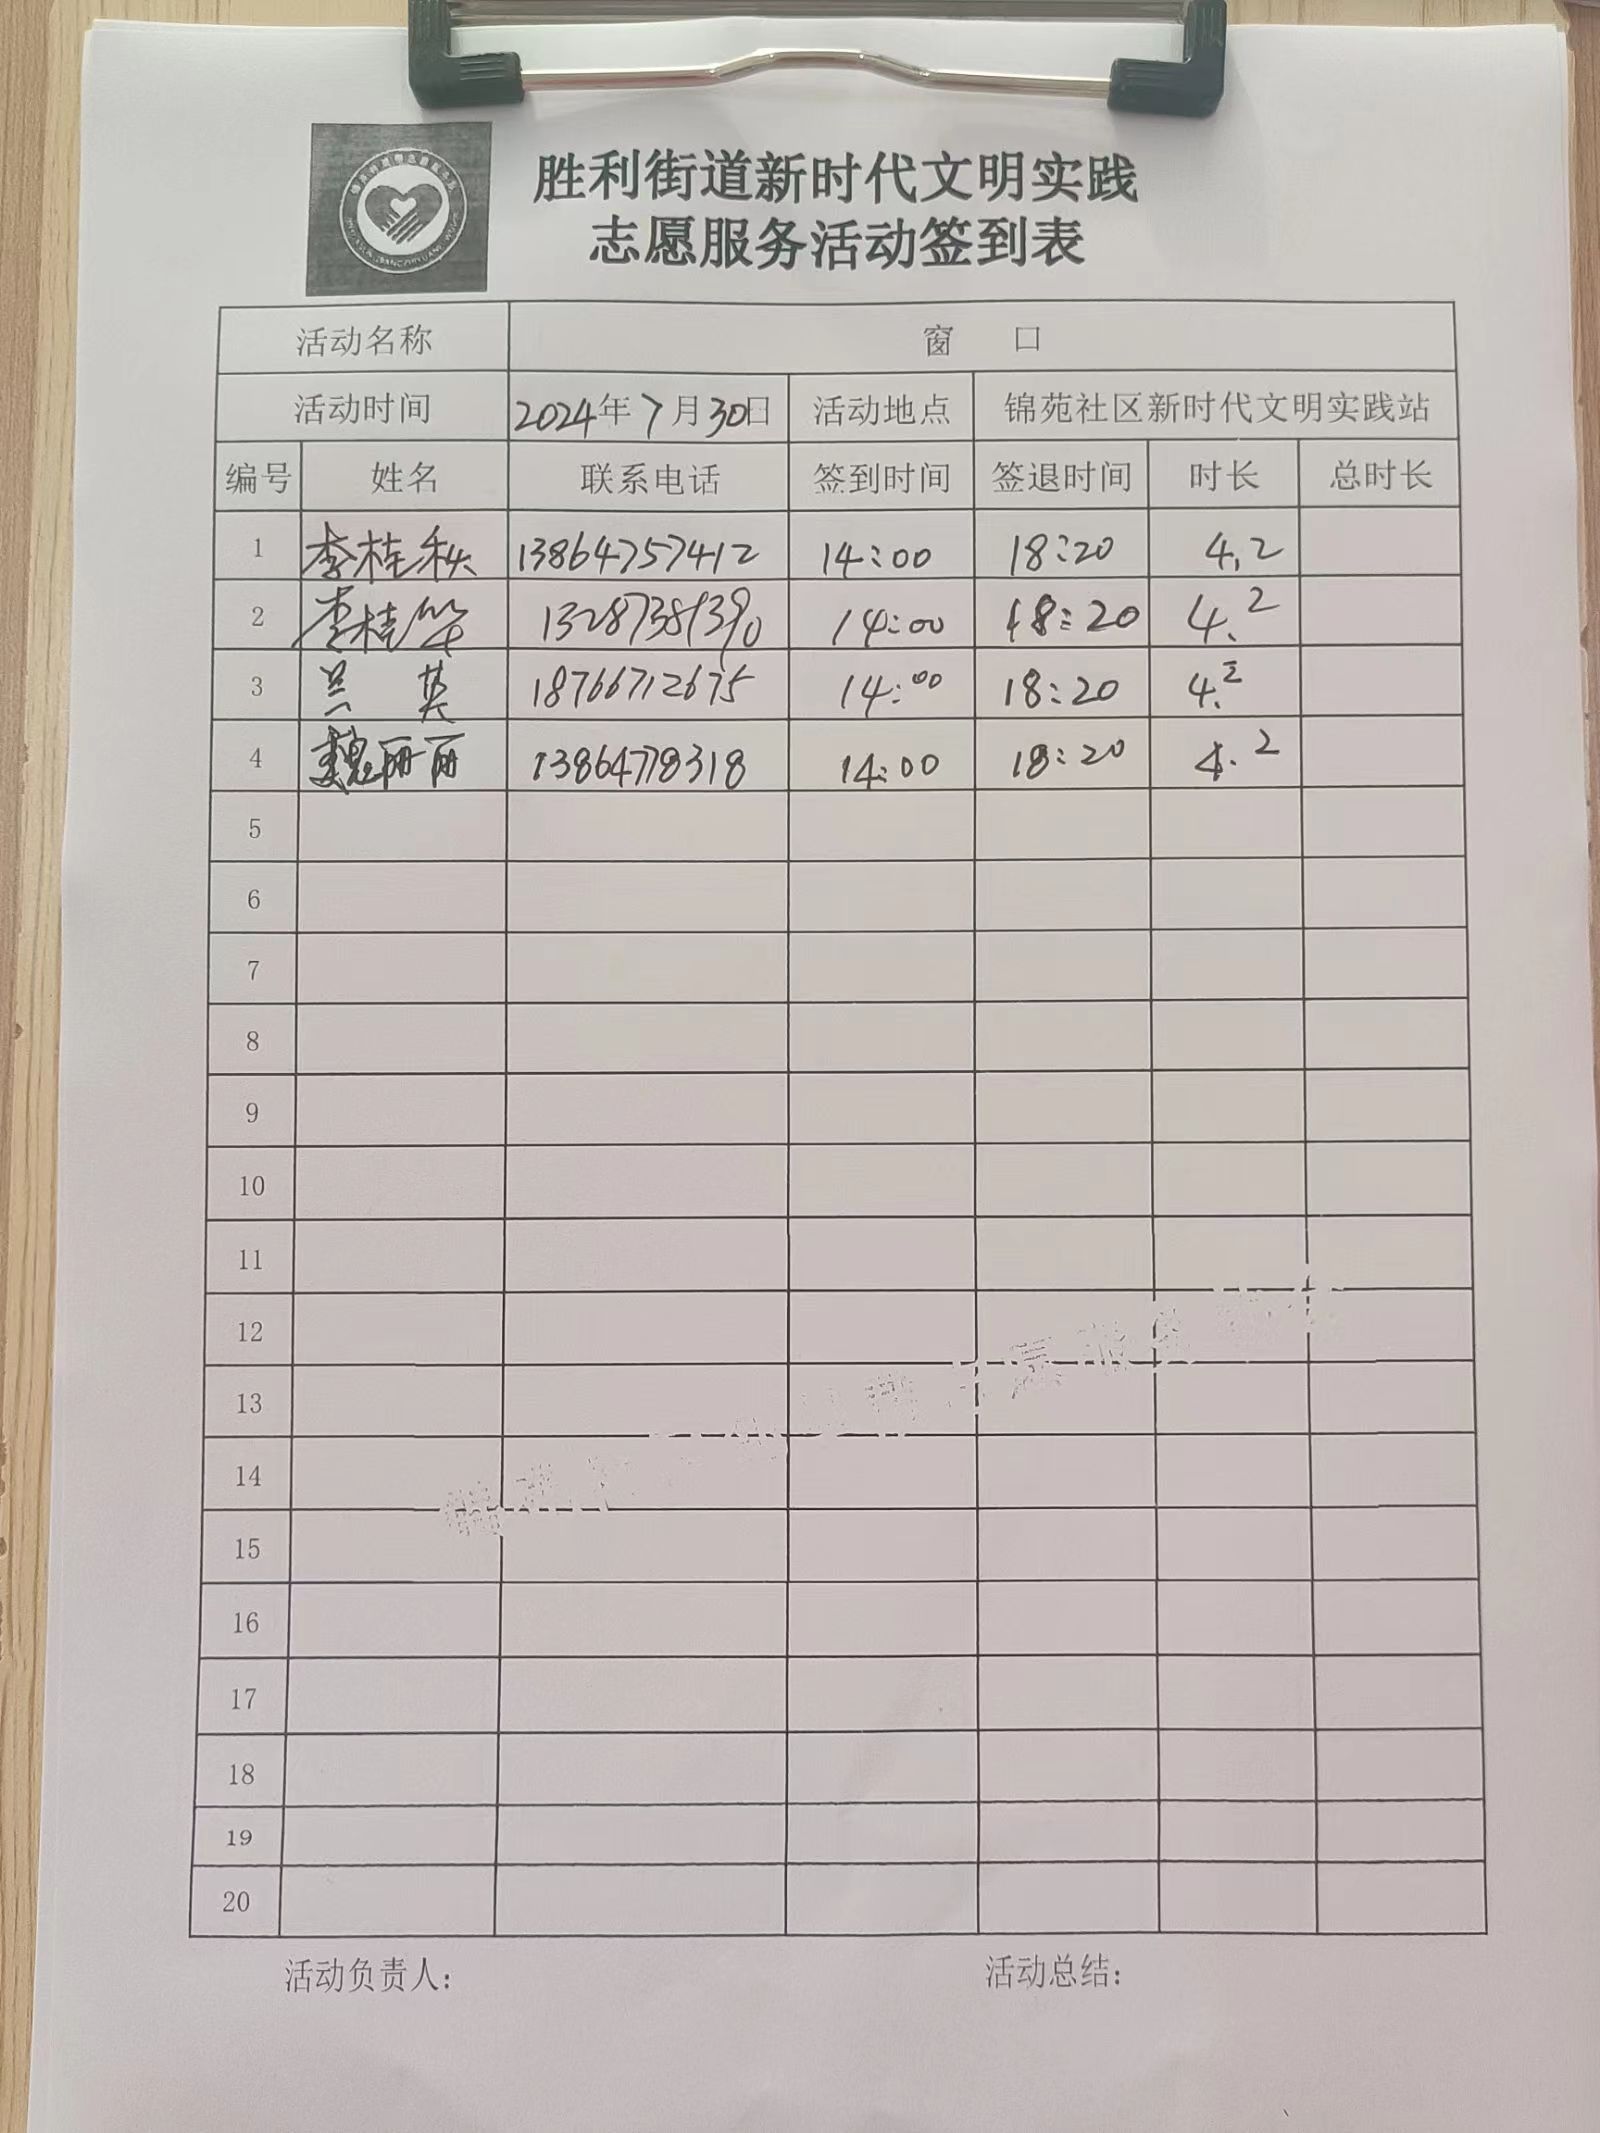 胜利街道新时代文明实践
志愿服务活动签到表
活动名称 窗 口
活动时间 2024年7月30日 活动地点 锦苑社区新时代文明实践站
编号 姓名 联系电话 签到时间 签退时间 时长 总时长
1 李桂秋 13864757412 14:00 18:20 4.2
2 李桂华 14:00 18:20 4.2
3 兰英 18766712675 14:00 18:20 4.2
4 魏丽丽 13864778318 14:00 18:20 4.2
5
6
7
8
9
10
11
12
13
14
15
16
17
18
19
20
活动负责人: 活动总结: